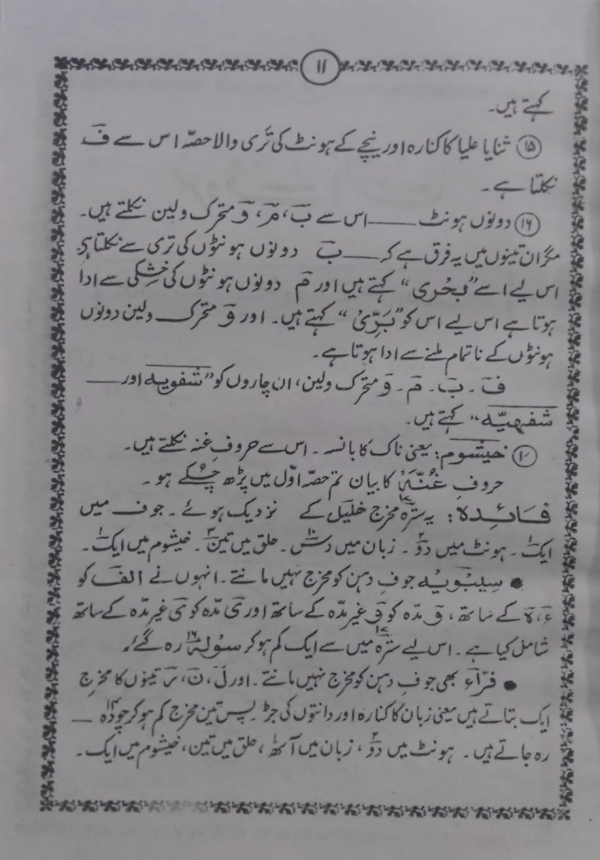 ۱۱
کہتے ہیں۔
۱۵ ثنایا علیا کا کنارہ اور نیچے کے ہونٹ کی تَری والا حصّہ اس سے فَ
نکلتا ہے۔
۱۶ دونوں ہونٹ ــــ اس سے بَ، مَ، وَ متحرک ولین نکلتے ہیں۔
مگر ان تینوں میں یہ فرق ہے کہ ــــ بَ دونوں ہونٹوں کی تری سے نکلتا ہے
اس لیے اسے "بحری" کہتے ہیں اور مَ دونوں ہونٹوں کی خشکی سے ادا
ہوتا ہے اس لیے اس کو "بَرّی" کہتے ہیں۔ اور وَ متحرک ولین دونوں
ہونٹوں کے ناتمام ملنے سے ادا ہوتا ہے۔
فَ۔ بَ۔ مَ۔ وَ متحرک ولین، ان چاروں کو "شفویہ اور ــــ
شفہیّہ" کہتے ہیں۔
خیشوم: یعنی ناک کا بانسہ۔ اس سے حروفِ غنہ نکلتے ہیں۔
حروفِ غُنّہ کا بیان تم حصّہ اوّل میں پڑھ چُکے ہو۔
فائدہ: یہ سترہ۱۷ مخرج خلیل کے نزدیک ہوئے۔ جوف میں
ایک۱۔ ہونٹ میں دو۲۔ زبان میں دس۱۰۔ حلق میں تین۳۔ خیشوم میں ایک۱۔
• سیبویہ جوفِ دہن کو مخرج نہیں مانتے۔ انہوں نے الف کو
ءَ، ہَ کے ساتھ، وَ مدّہ کو وَ غیر مدّہ کے ساتھ اور یَ مدّہ کو یَ غیر مدّہ کے ساتھ
شامل کیا ہے۔ اس لیے سترہ۱۷ میں سے ایک کم ہو کر سولہ۱۶ رہ گئے۔
• فرّاء بھی جوفِ دہن کو مخرج نہیں مانتے۔ اور لَ، نَ، رَ تینوں کا مخرج
ایک بتاتے ہیں یعنی زبان کا کنارہ اور دانتوں کی جڑ پس تین مخرج کم ہو کر چودہ۱۴ ــــ
رہ جاتے ہیں۔ ہونٹ میں دو۲، زبان میں آٹھ۸، حلق میں تین، خیشوم میں ایک۔